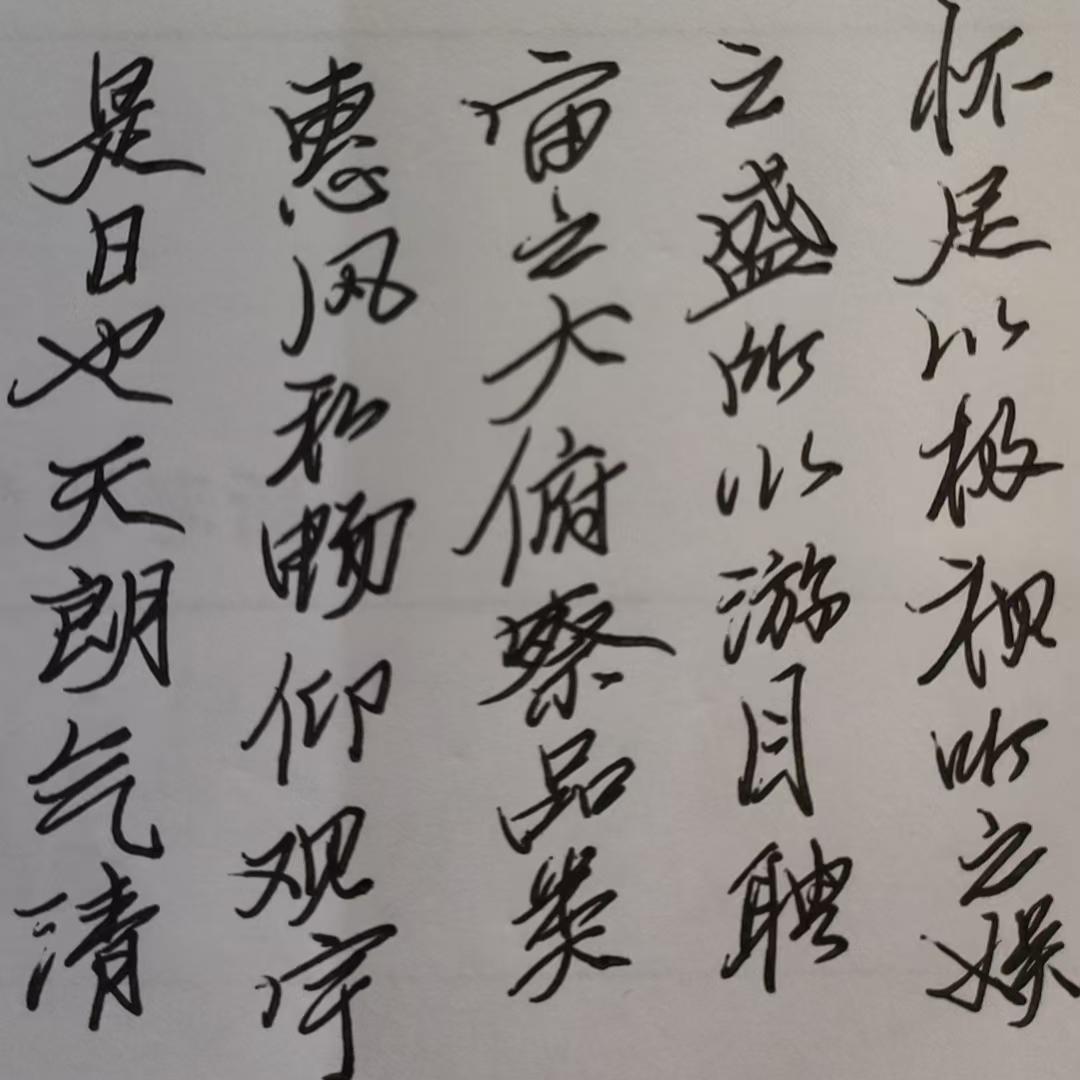 是日也天朗气清
惠风和畅仰观宇
宙之大俯察品类
之盛所以游目聘
怀足以极视听之娱